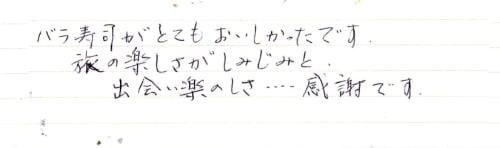 バラ寿司がとてもおいしかったです.
旅の楽しさがしみじみと.
出会い楽のしさ‥‥感謝です.